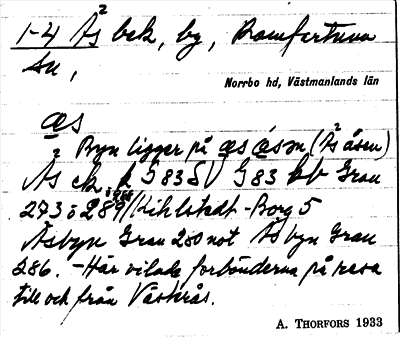 1-4 Ås bek, by, Romfartuna
sn,
Norrbo hd, Västmanlands län
æs
Byn ligger på æs ásen (Ås åsen)
Ås ek, k G 83 SV G 83 bb Grau
273 ö 289 // Kihlstedt-Borg 5
Åsbyn Grau 280 not Åsbyn Grau
286. - Här vilade forbönderna på resa
till och från Västerås.
A. THORFORS 1933